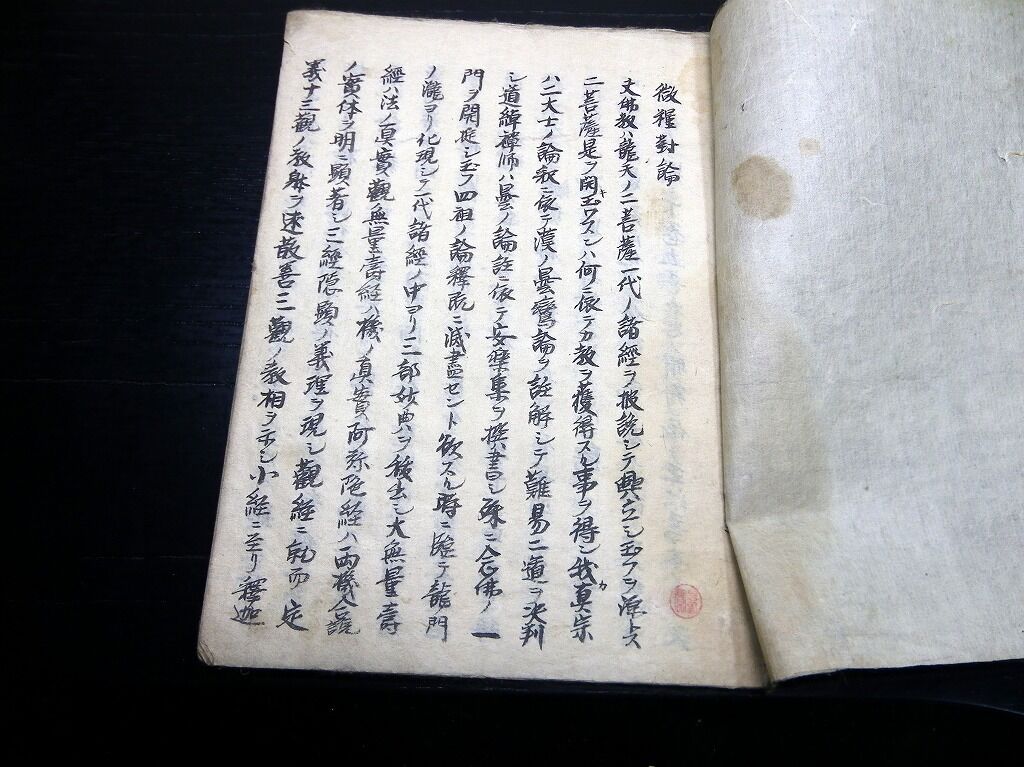 徴糧對論
文佛教ハ龍天ノ二菩薩一代ノ諸經ヲ披讀シテ興立シ玉フヲ源トス
二菩薩是ヲ開キ玉ワスンハ何ニ依テカ教ヲ獲得スル事ヲ得シ我カ真宗
ハ二大士ノ論釈ニ依テ漢ノ曇鸞論ヲ註解シテ難易二道ヲ決判
シ道綽禅師ハ曇ノ論註ニ依テ安樂集ヲ撰書シ殊ニ念佛ノ一
門ヲ開延シ玉フ四祖ノ論釋既ニ滅盡セント欲スル時ニ臨テ龍門
ノ瀧ヨリ化現シテ一代諸經ノ中ヨリ三部妙典ヲ抜出シ大無量壽
經ハ法ノ真實觀無量壽經ハ機ノ真實阿弥陀經ハ両機合説
ノ實体ヲ明ニ顕著シ三經隠顕ノ義理ヲ現シ觀經ニ就而定
義十三觀ノ教躰ヲ述散善三觀ノ教相ヲ示シ小經ニ至リ釋迦